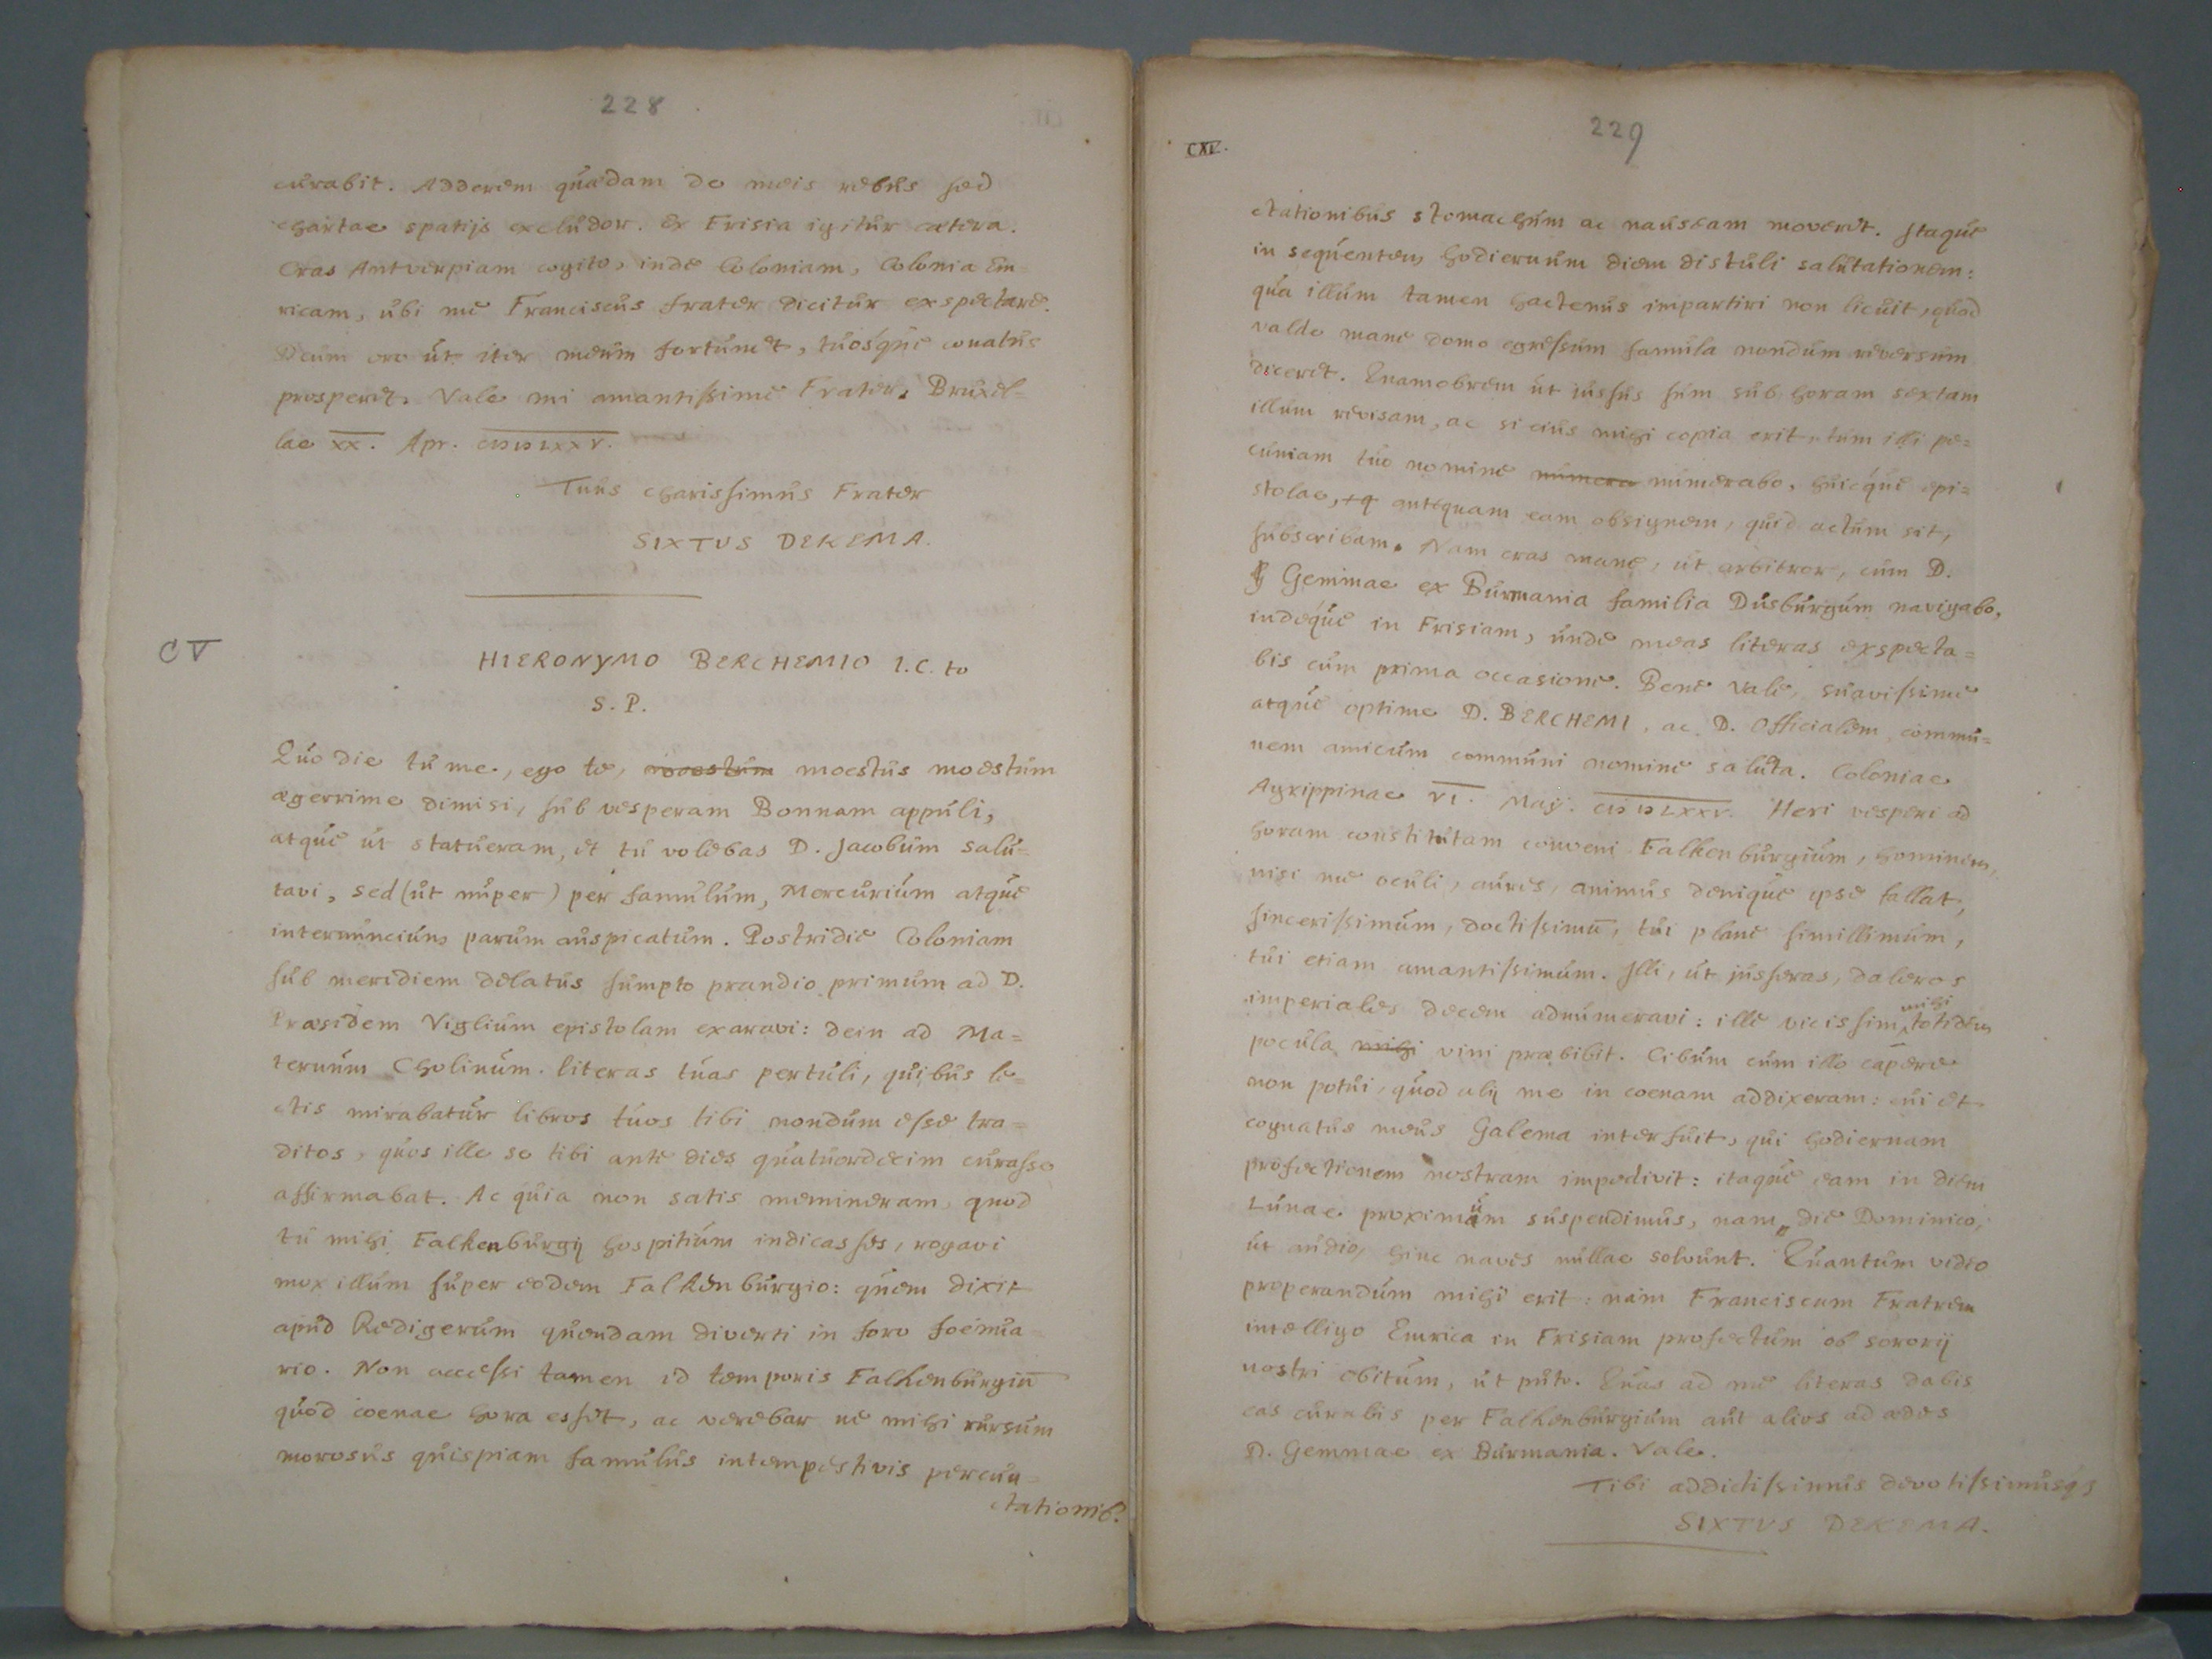 228
curabit. Adderem quædam de meis rebus sed
chartae spatijs excludor. Ex Frisia igitur cætera.
Cras Antverpiam cogito, inde Coloniam, Colonia Em=
ricam, ubi me Franciscus frater dicitur exspectare.
Deum oro ut iter meum fortunet, tuosque conatus
prosperet. Vale mi amantissime Frater. Bruxel=
lae XX. Apr. CIƆIƆLXXV.
Tuus charissimus Frater
SIXTVS DEKEMA.
CV
HIERONYMO BERCHEMIO I.C.to
S.P.
Quo die tu me, ego te, moestum moestus moestum
ægerrime dimisi, sub vesperam Bonnam appuli,
atque ut statueram, et tu volebas D. Jacobum salu=
tavi, sed (ut nuper) per famulum, Mercurium atque
internuncium parum auspicatum. Postridie Coloniam
sub meridiem delatus sumpto prandio primum ad D.
Præsidem Viglium epistolam exaravi: dein ad Ma=
ternum Cholinum literas tuas pertuli, quibus le=
ctis mirabatur libros tuos tibi nondum esse tra=
ditos, quos ille se tibi ante dies quatuordecim curasse
affirmabat. Ac quia non satis memineram quod
tu mihi Falkenburgij hospitium indicasses, rogavi
mox illum super eodem Falkenburgio: quem dixit
apud Redigerum quendam diverti in foro foenua=
rio. Non accessi tamen id temporis Falkenburgiū
quod coenae hora esset, ac verebar ne mihi rursum
morosus quispiam famulus intempestivis percun=
ctationib.
CXV.
229
ctationibus stomachum ac nauseam moveret. Itaque
in sequentem hodiernum diem distuli salutationem:
qua illum tamen hactenus impartiri non licuit, quod
valde mane domo egressum famula nondum reversum
diceret. Quamobrem ut iussus sum sub horam sextam
illum revisam, ac si eius mihi copia erit, tum illi pe=
cuniam tuo nomine numera numerabo, huicque epi=
stolae, antequam eam obsignem, quid actum sit,
subscribam. Nam cras mane, ut arbitror, cum D.
Gemmae ex Burmania familia Dusburgum navigabo,
indeque in Frisiam, unde meas literas exspecta=
bis cum prima occasione. Bene vale, suavissime
atque optime D. BERCHEMI, ac D. Officialem commu=
nem amicum communi nomine saluta. Coloniae
Agrippinae VI. Maij. CIƆIƆLXXV. Heri vesperi ad
horam constitutam conveni Falkenburgium, hominem,
nisi me oculi, aures, animus denique ipse fallat,
sincerissimum, doctissimū, tui plane simillimum,
tui etiam amantissimum. Illi, ut iusseras, daleros
imperiales decem adnumeravi: ille vicissim mihi totidem
pocula mihi vini præbibit. Cibum cum illo capere
non potui, quod alij me in coenam addixeram: cui et
cognatus meus Galema interfuit, qui hodiernam
profectionem nostram impedivit: itaque eam in diem
Lunae proximum suspendimus, nam die Dominico,
ut audio, hinc naves nullae solvunt. Quantum video
properandum mihi erit: nam Franciscum Fratrem
intelligo Emrica in Frisiam profectum ob sororij
nostri obitum, ut puto. Quas ad me literas dabis
eas curabis per Falkenburgium aut alios ad ædes
D. Gemmae ex Burmania. Vale.
Tibi addictissimus devotissimusq;
SIXTVS DEKEMA.